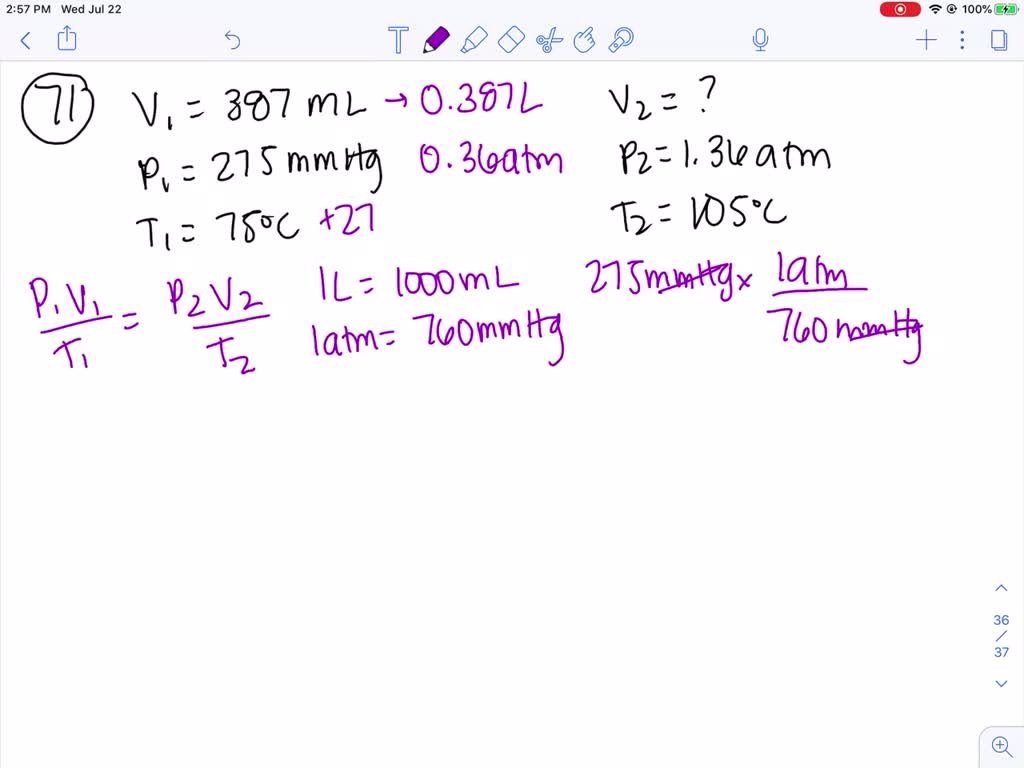 2:57 PM Wed Jul 22
100%
T
71
V₁ = 387 mL → 0.387L
V₂ = ?
P₁ = 275 mmHg 0.36atm
P₂ = 1.36 atm
T₁ = 75°C +27
T₂ = 105°C
P₁V₁/T₁ = P₂V₂/T₂
1L = 1000mL
1atm = 760mmHg
275mmHg x 1atm/760mmHg
36
/
37